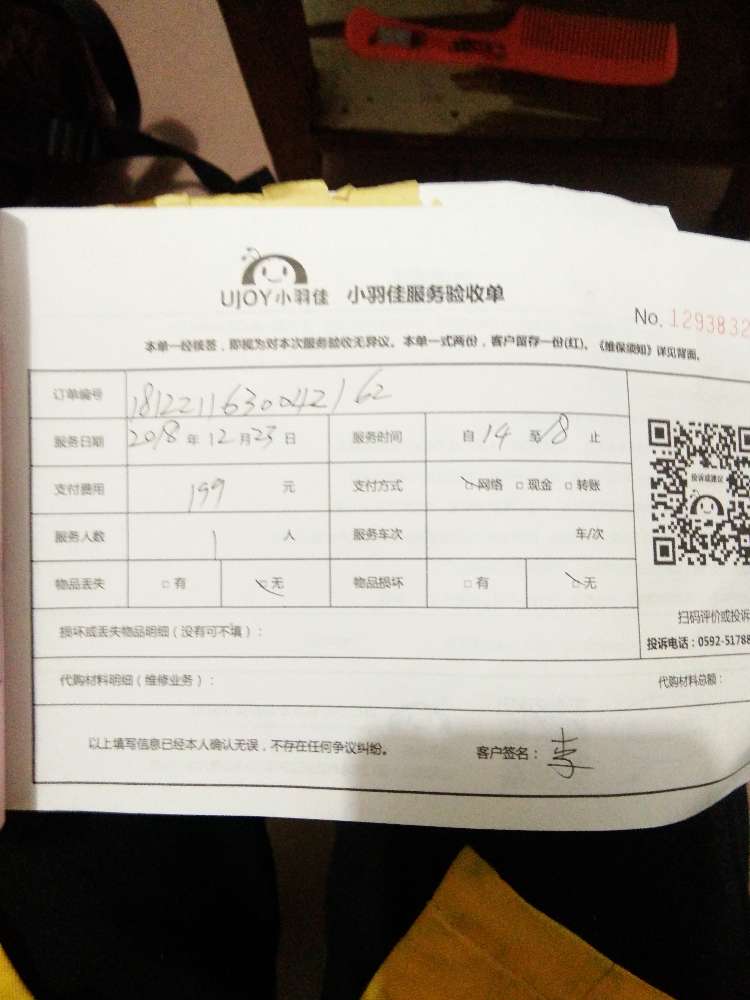 UJOY小羽佳 小羽佳服务验收单
No. 1293832
本单一经核签，即视为对本次服务验收无异议。本单一式两份，客户留存一份(红)。《维保须知》详见背面。
订单编号 18122116300042162
服务日期 2018年12月23日 服务时间 自14至18止
支付费用 199元 支付方式 □网络 □现金 □转账
投诉或建议
服务人数 1人 服务车次 车/次
物品丢失 □有 □无 物品损坏 □有 □无
扫码评价或投诉
损坏或丢失物品明细（没有可不填）：
投诉电话：0592-51788
代购材料明细（维修业务）： 代购材料总额：
以上填写信息已经本人确认无误，不存在任何争议纠纷。 客户签名：李